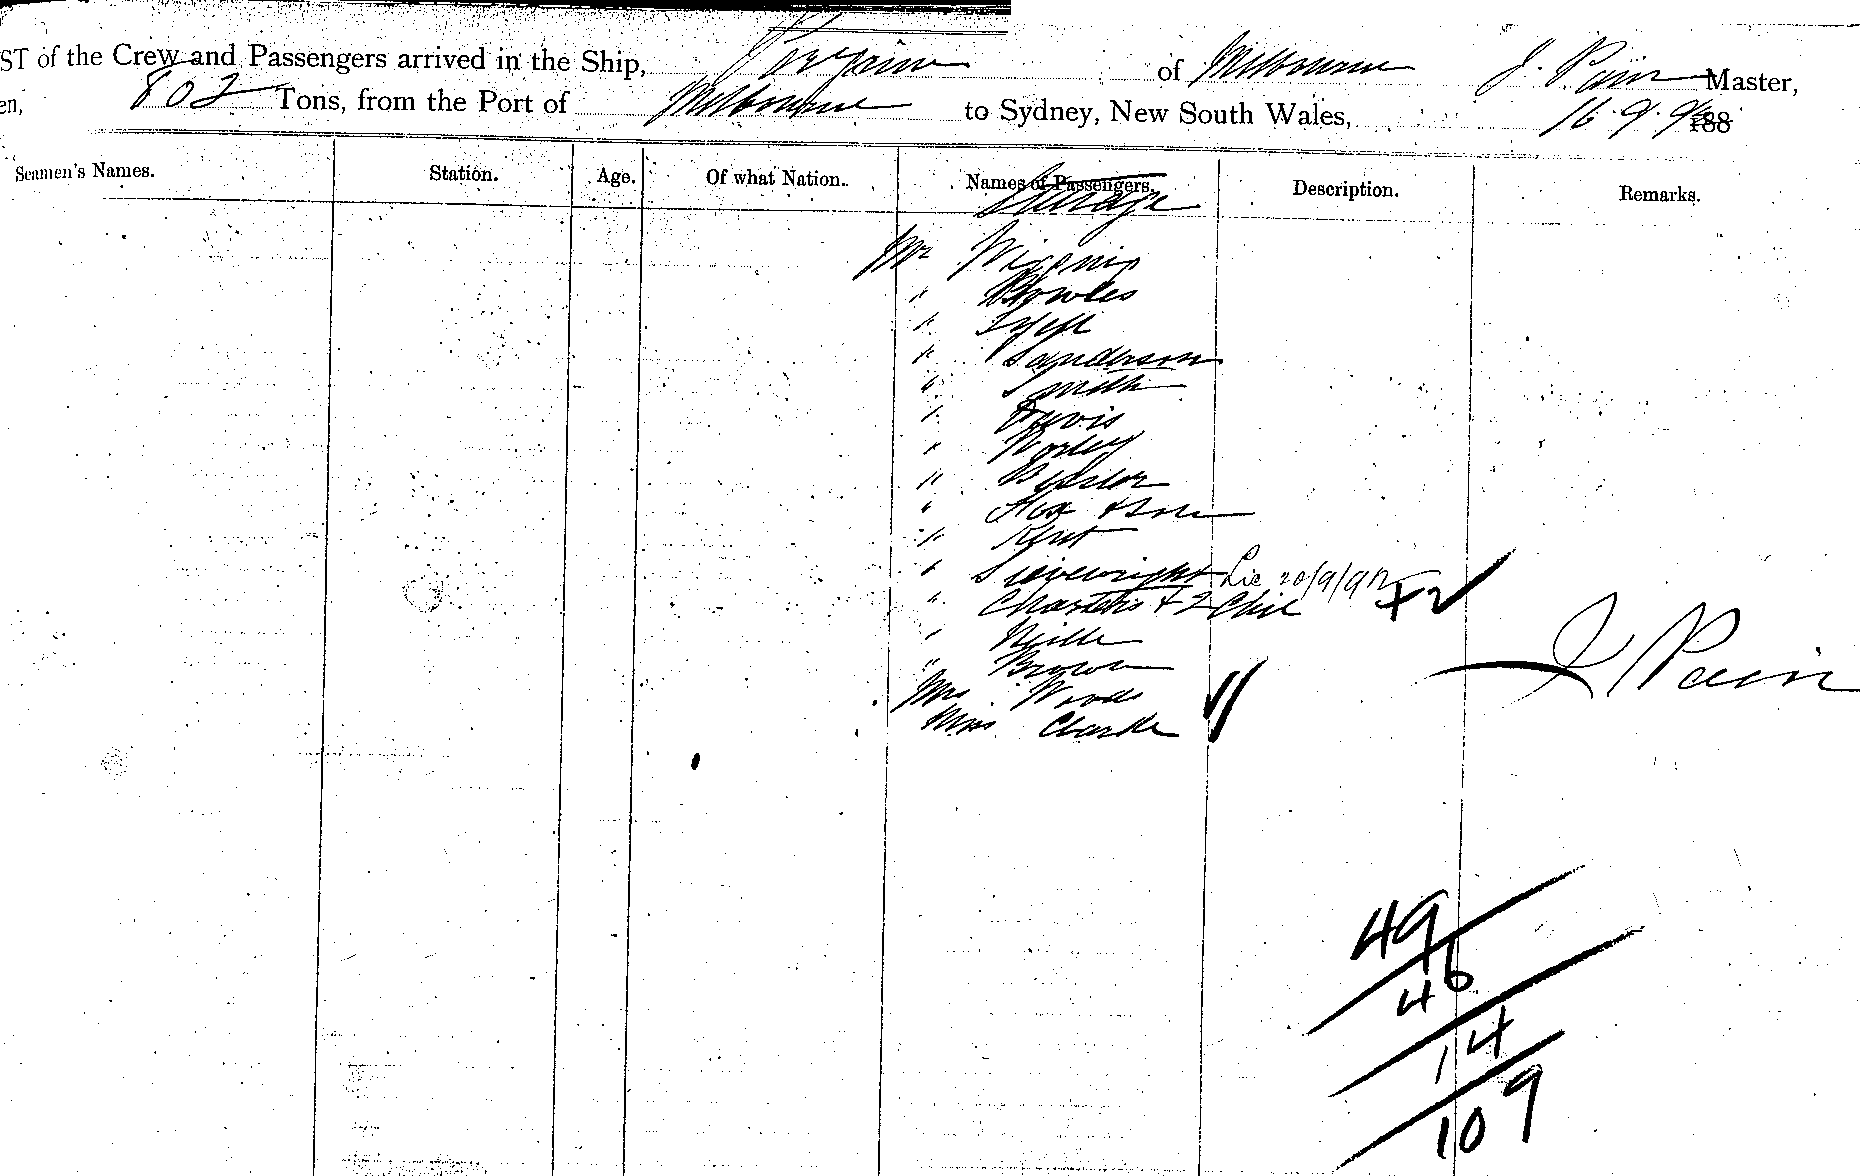 ST of the Crew and Passengers arrived in the Ship, of Melbourne J. Pain Master,
en, 802 Tons, from the Port of Melbourne to Sydney, New South Wales, 16.9.9 188
Seamen's Names. Station. Age. Of what Nation. Names of Passengers. Description. Remarks.
Steerage
Mr
" Bowles
"
" Sanderson
" Smith
" Davis
" Worley
"
" Fox + Son
" Kent
" Sievewright Lie 20/9/92
" Charteris + 2 Chil + 2
"
" Brown
Mrs Woods
Miss Clarke
J Pain
49
46
14
109